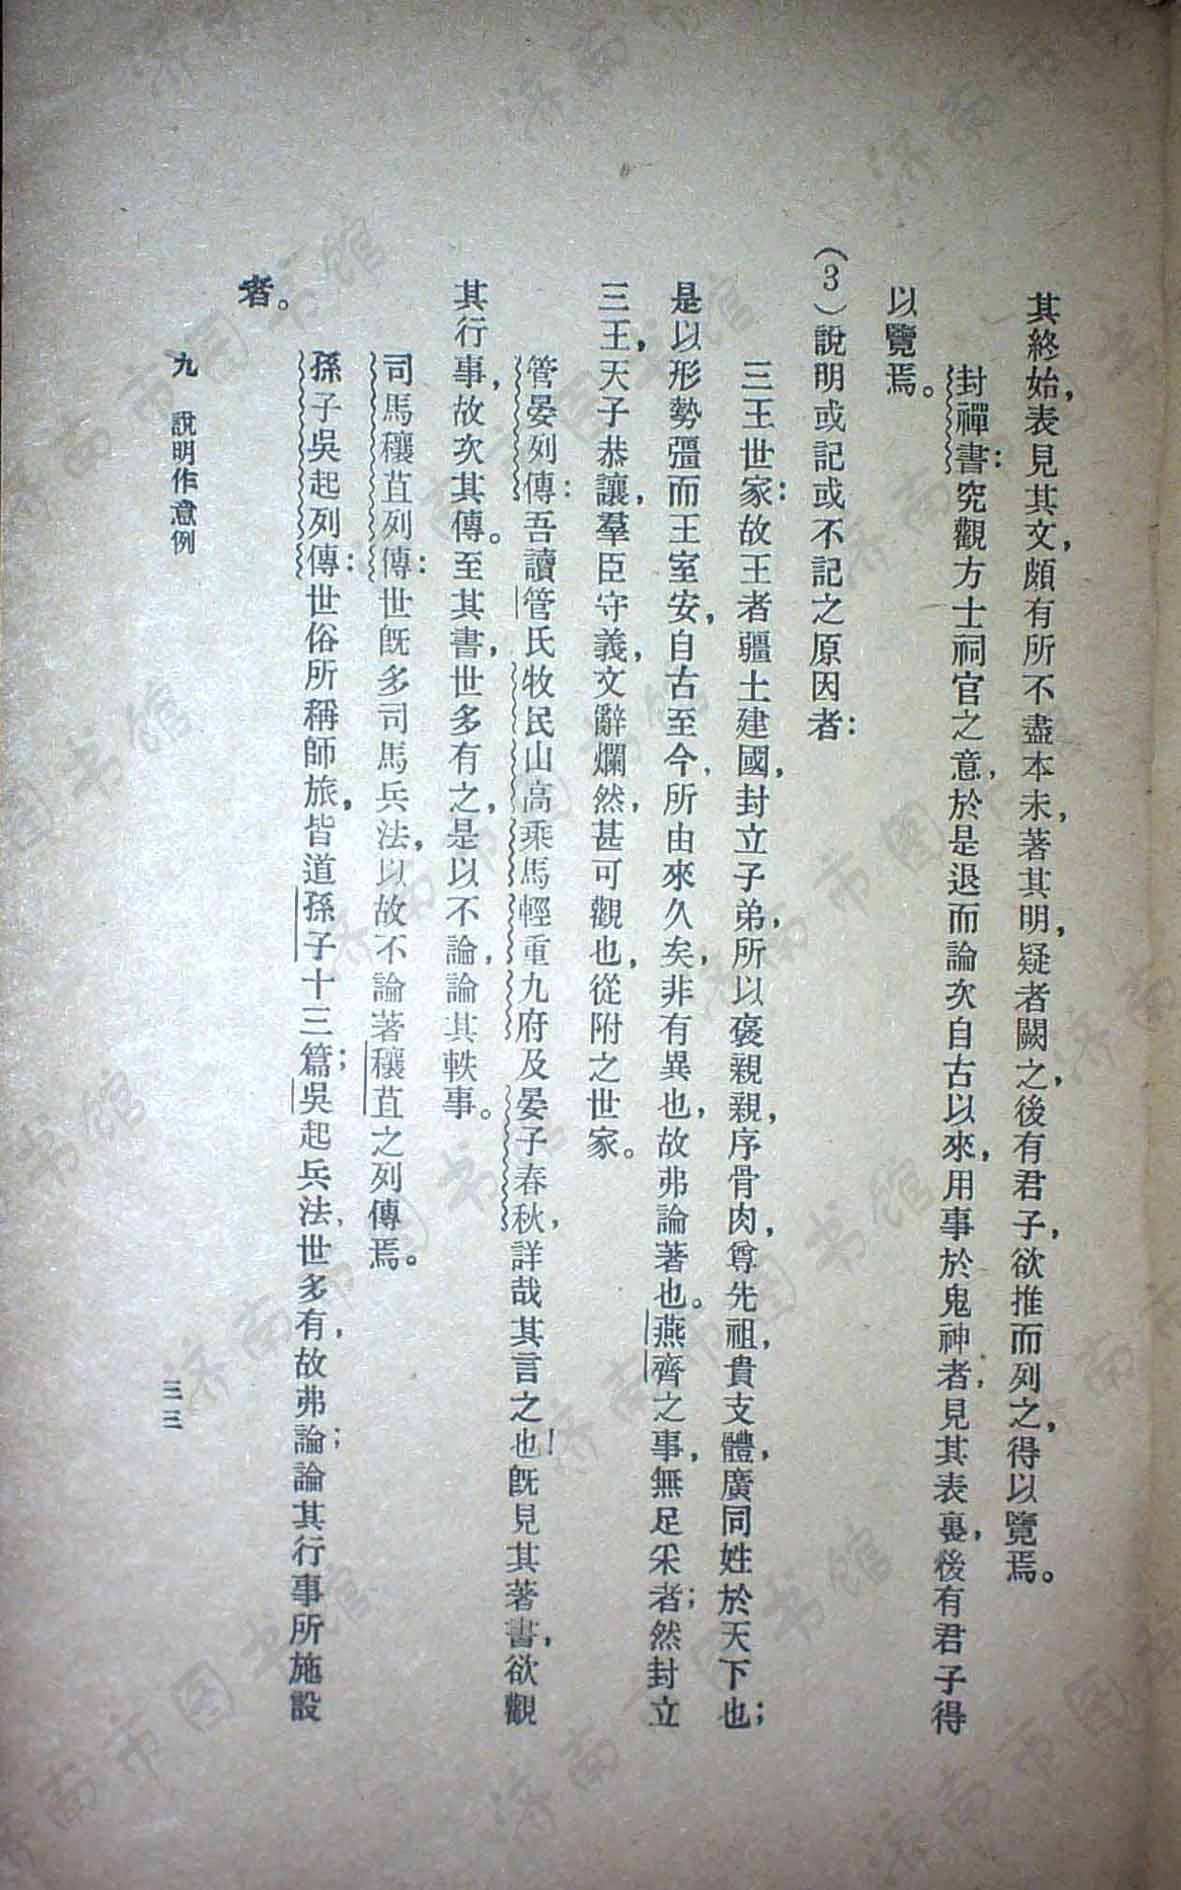 其終始，表見其文，頗有所不盡本末，著其明，疑者闕之，後有君子，欲推而列之，得以覽焉。
封禪書：究觀方士祠官之意，於是退而論次自古以來，用事於鬼神者，見其表裏，後有君子得
以覽焉。
（3）說明或記或不記之原因者：
三王世家：故王者疆土建國，封立子弟，所以褒親親，序骨肉，尊先祖，貴支體，廣同姓於天下也；
是以形勢彊而王室安，自古至今，所由來久矣，非有異也，故弗論著也。燕齊之事，無足采者；然封立
三王，天子恭讓，羣臣守義，文辭爛然，甚可觀也，從附之世家。
管晏列傳：吾讀管氏牧民山高乘馬輕重九府及晏子春秋，詳哉其言之也！旣見其著書，欲觀
其行事，故次其傳。至其書，世多有之，是以不論，論其軼事。
司馬穰苴列傳：世旣多司馬兵法，以故不論著穰苴之列傳焉。
孫子吳起列傳：世俗所稱師旅，皆道孫子十三篇；吳起兵法，世多有，故弗論；論其行事所施設
者。
九 說明作意例
三三
济南市图书馆